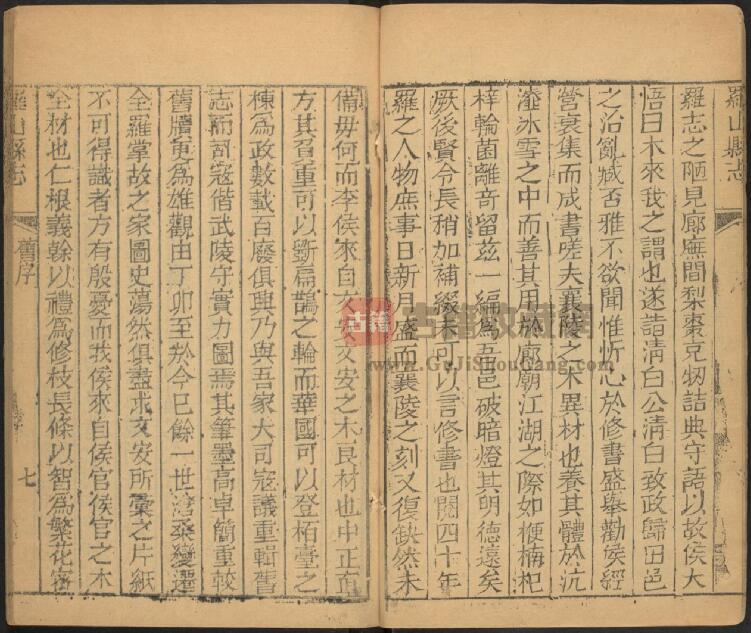 羅山縣志
羅志之陋見廊廡間梨棗克牣詰典守語以故侯大
悟曰木來我之謂也遂詣淸白公淸白致政歸田邑
之治亂臧否雅不欲聞惟忻心於修書盛舉勸侯經
營裒集而成書嗟夫襄陵之木異材也養其體於沆
瀣冰雪之中而善其用於廊廟江湖之際如楩楠杞
梓輪菌離奇留茲一編爲吾邑破暗燈其明德遠矣
厥後賢令長稍加補綴未可以言修書也閱四十年
羅之人物庶事日新月盛而襄陵之刻又復缺然未
備毋何而李侯來自文安文安之木良材也中正而
方其負重可以斲扁鵲之輪而華國可以登栢臺之
棟爲政數載百廢俱興乃與吾家大司寇議重輯舊
志而司寇偕武陵守實力圖焉其筆墨高卓簡重較
舊牘更爲雄觀由丁卯至於今已餘一世滄桑變遷
全羅掌故之家圖史蕩然俱盡求文安所彙之片紙
不可得識者方有殷憂而我侯來自侯官侯官之木
全材也仁根義榦以禮爲修枝長條以智爲繁花密
羅山縣志
舊序
七
古籍
古籍收藏網
www.GuJiShouCang.com